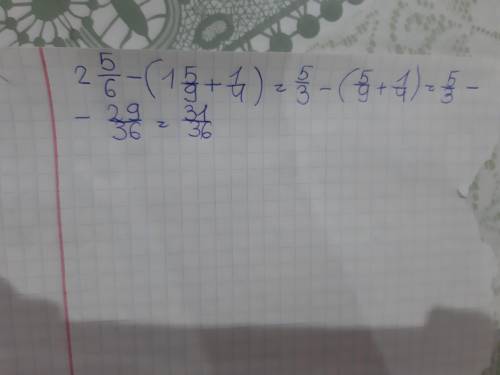 2 5/6 - (1 5/9 + 1/4) = 5/3 - (5/9 + 1/4) = 5/3 -
- 29/36 = 31/36